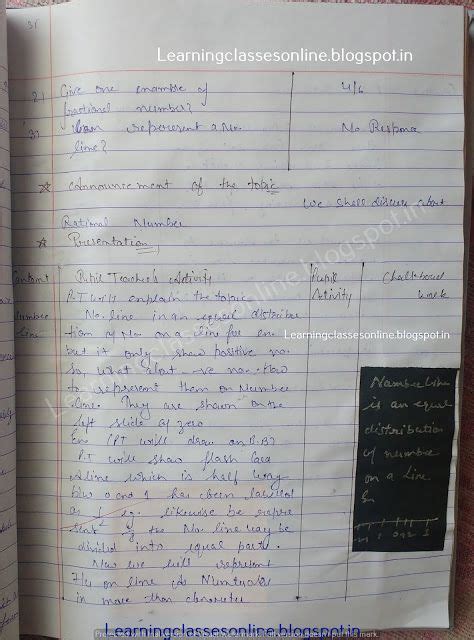 31
Learningclassesonline.blogspot.in
2) Give one example of 4/6
fractional number?
3) represent a No. No Response
line?
☆ Announcement of the topic
We shall discuss about
Rational Number
☆ Presentation
Content Pupil Teacher's Activity Pupil Activity Chalkboard work
Number line
P.T will explain the topic
No. line is an equal distribu
tion of No. on a line for ex.
but it only show positive no.
so, what about -ve no. How
to represent them on Number
line. They are shown on the
left side of zero
Ex (PT will draw on B.B)
P.T will show flash card
A line which is half way
b/w 0 and 1 has been labelled
as 1/2 eg. likewise be repre
sent the No. line may be
divided into equal parts.
Now we will represent
on line
in more than
Number line
is an equal
distribution
of number
on a line
Learningclassesonline.blogspot.in
Learningclassesonline.blogspot.in
Learningclassesonline.blogspot.in